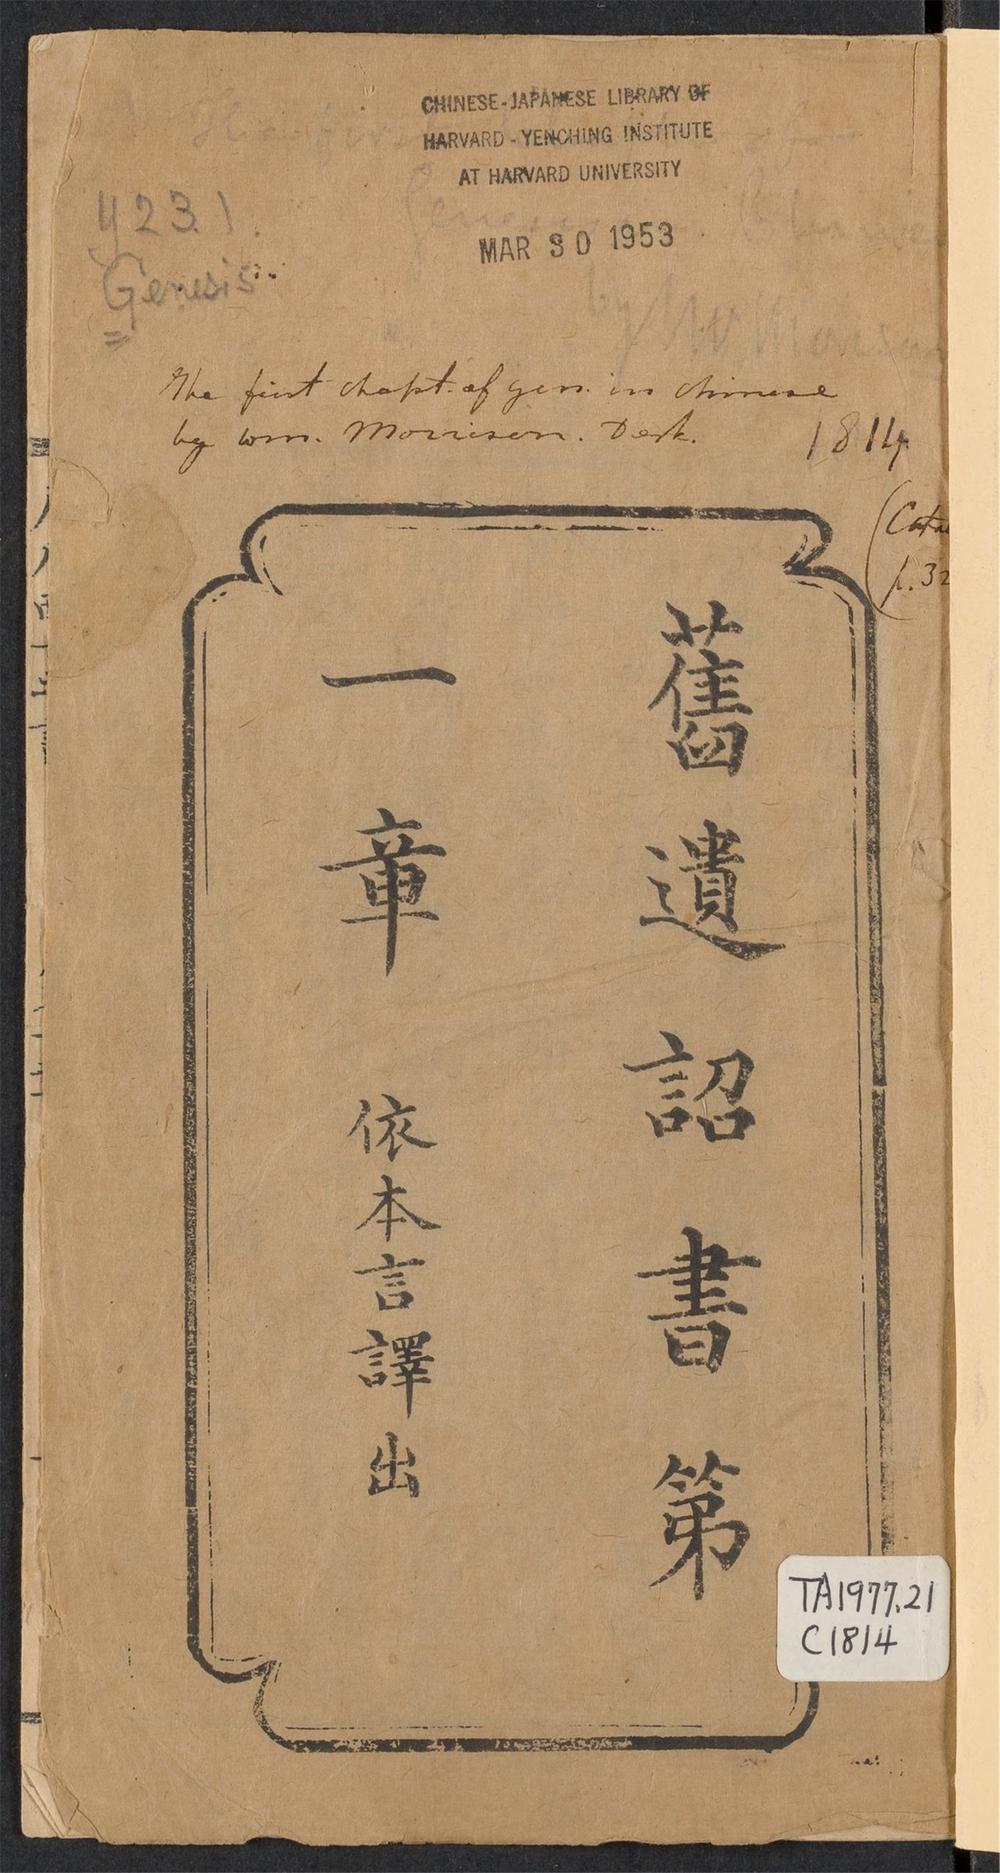 CHINESE-JAPANESE LIBRARY OF
HARVARD-YENCHING INSTITUTE
AT HARVARD UNIVERSITY
MAR 30 1953
y 23.1.
Genesis
The first chapt. of gen. in chinese
by wm. Morrison.
1814
舊遺詔書第
一章 依本言譯出
TA1977.21
C1814